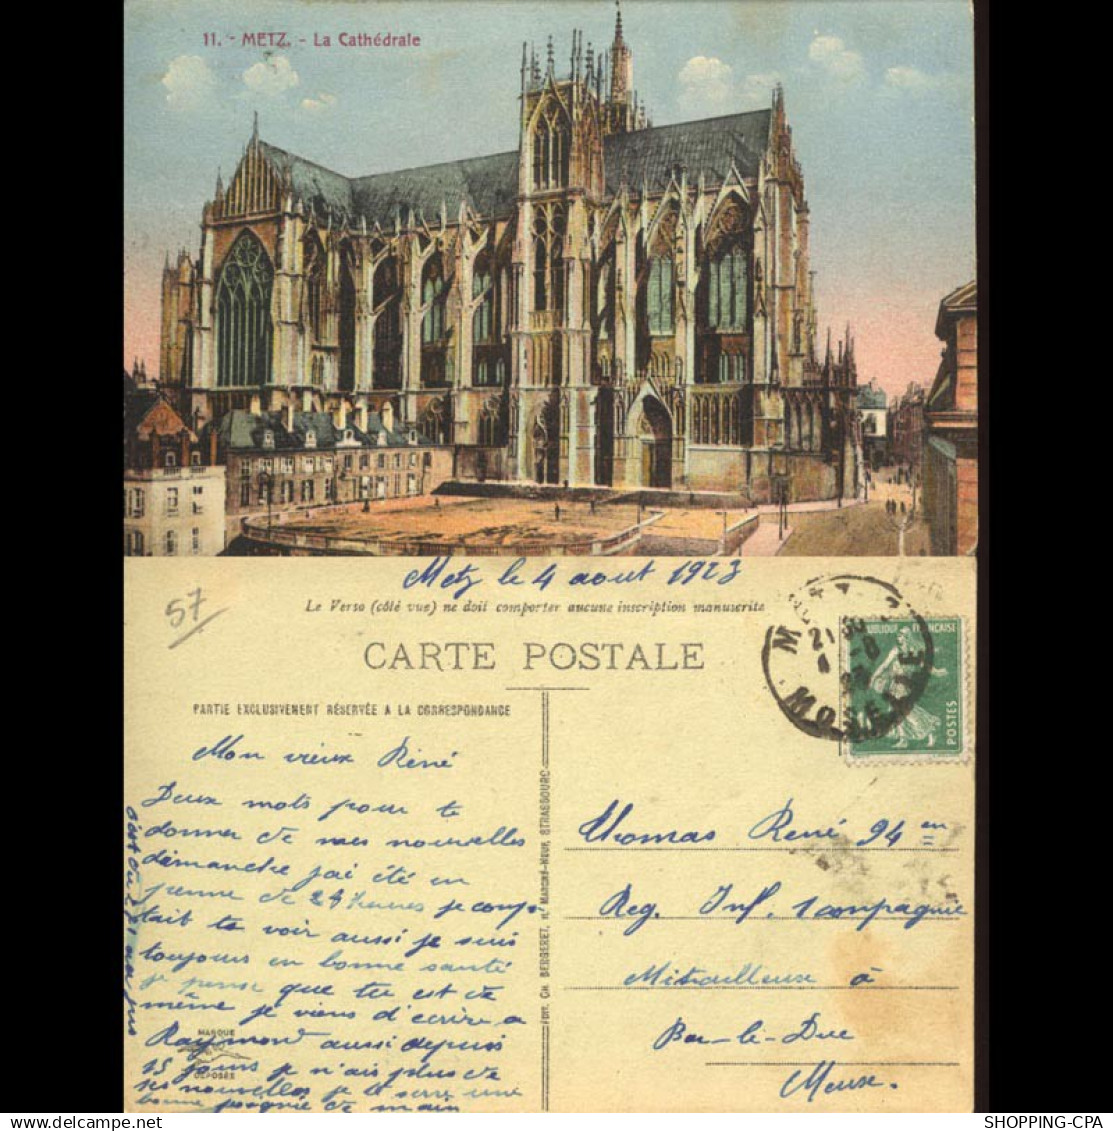 11. - METZ. - La Cathédrale
57
Metz le 4 aout 1923
Le Verso (côté vue) ne doit comporter aucune inscription manuscrite
CARTE POSTALE
METZ
21 30
MOSELLE
REPUBLIQUE FRANÇAISE
POSTES
PARTIE EXCLUSIVEMENT RÉSERVÉE A LA CORRESPONDANCE
Mon vieux Réné
Deux mots pour te
donner de mes nouvelles
démanche j'ai été en
perme de 24 heures je comp-
tait te voir aussi je suis
toujours en bonne santé
je pense que tu est de
même je viens d'ecrire a
Raymond aussi depuis
15 jours je n'ais plus de
ses nouvelles je te serre une
bonne poignée de main
MARQUE
DÉPOSÉE
ÉDIT. CH. BERGERET, MARCHÉ-NEUF, STRASBOURG
Thomas René 94 em
Reg. Inf. 1 compagnie
Mitrailleuse à
Bar-le-Duc
Meuse.
SHOPPING-CPA